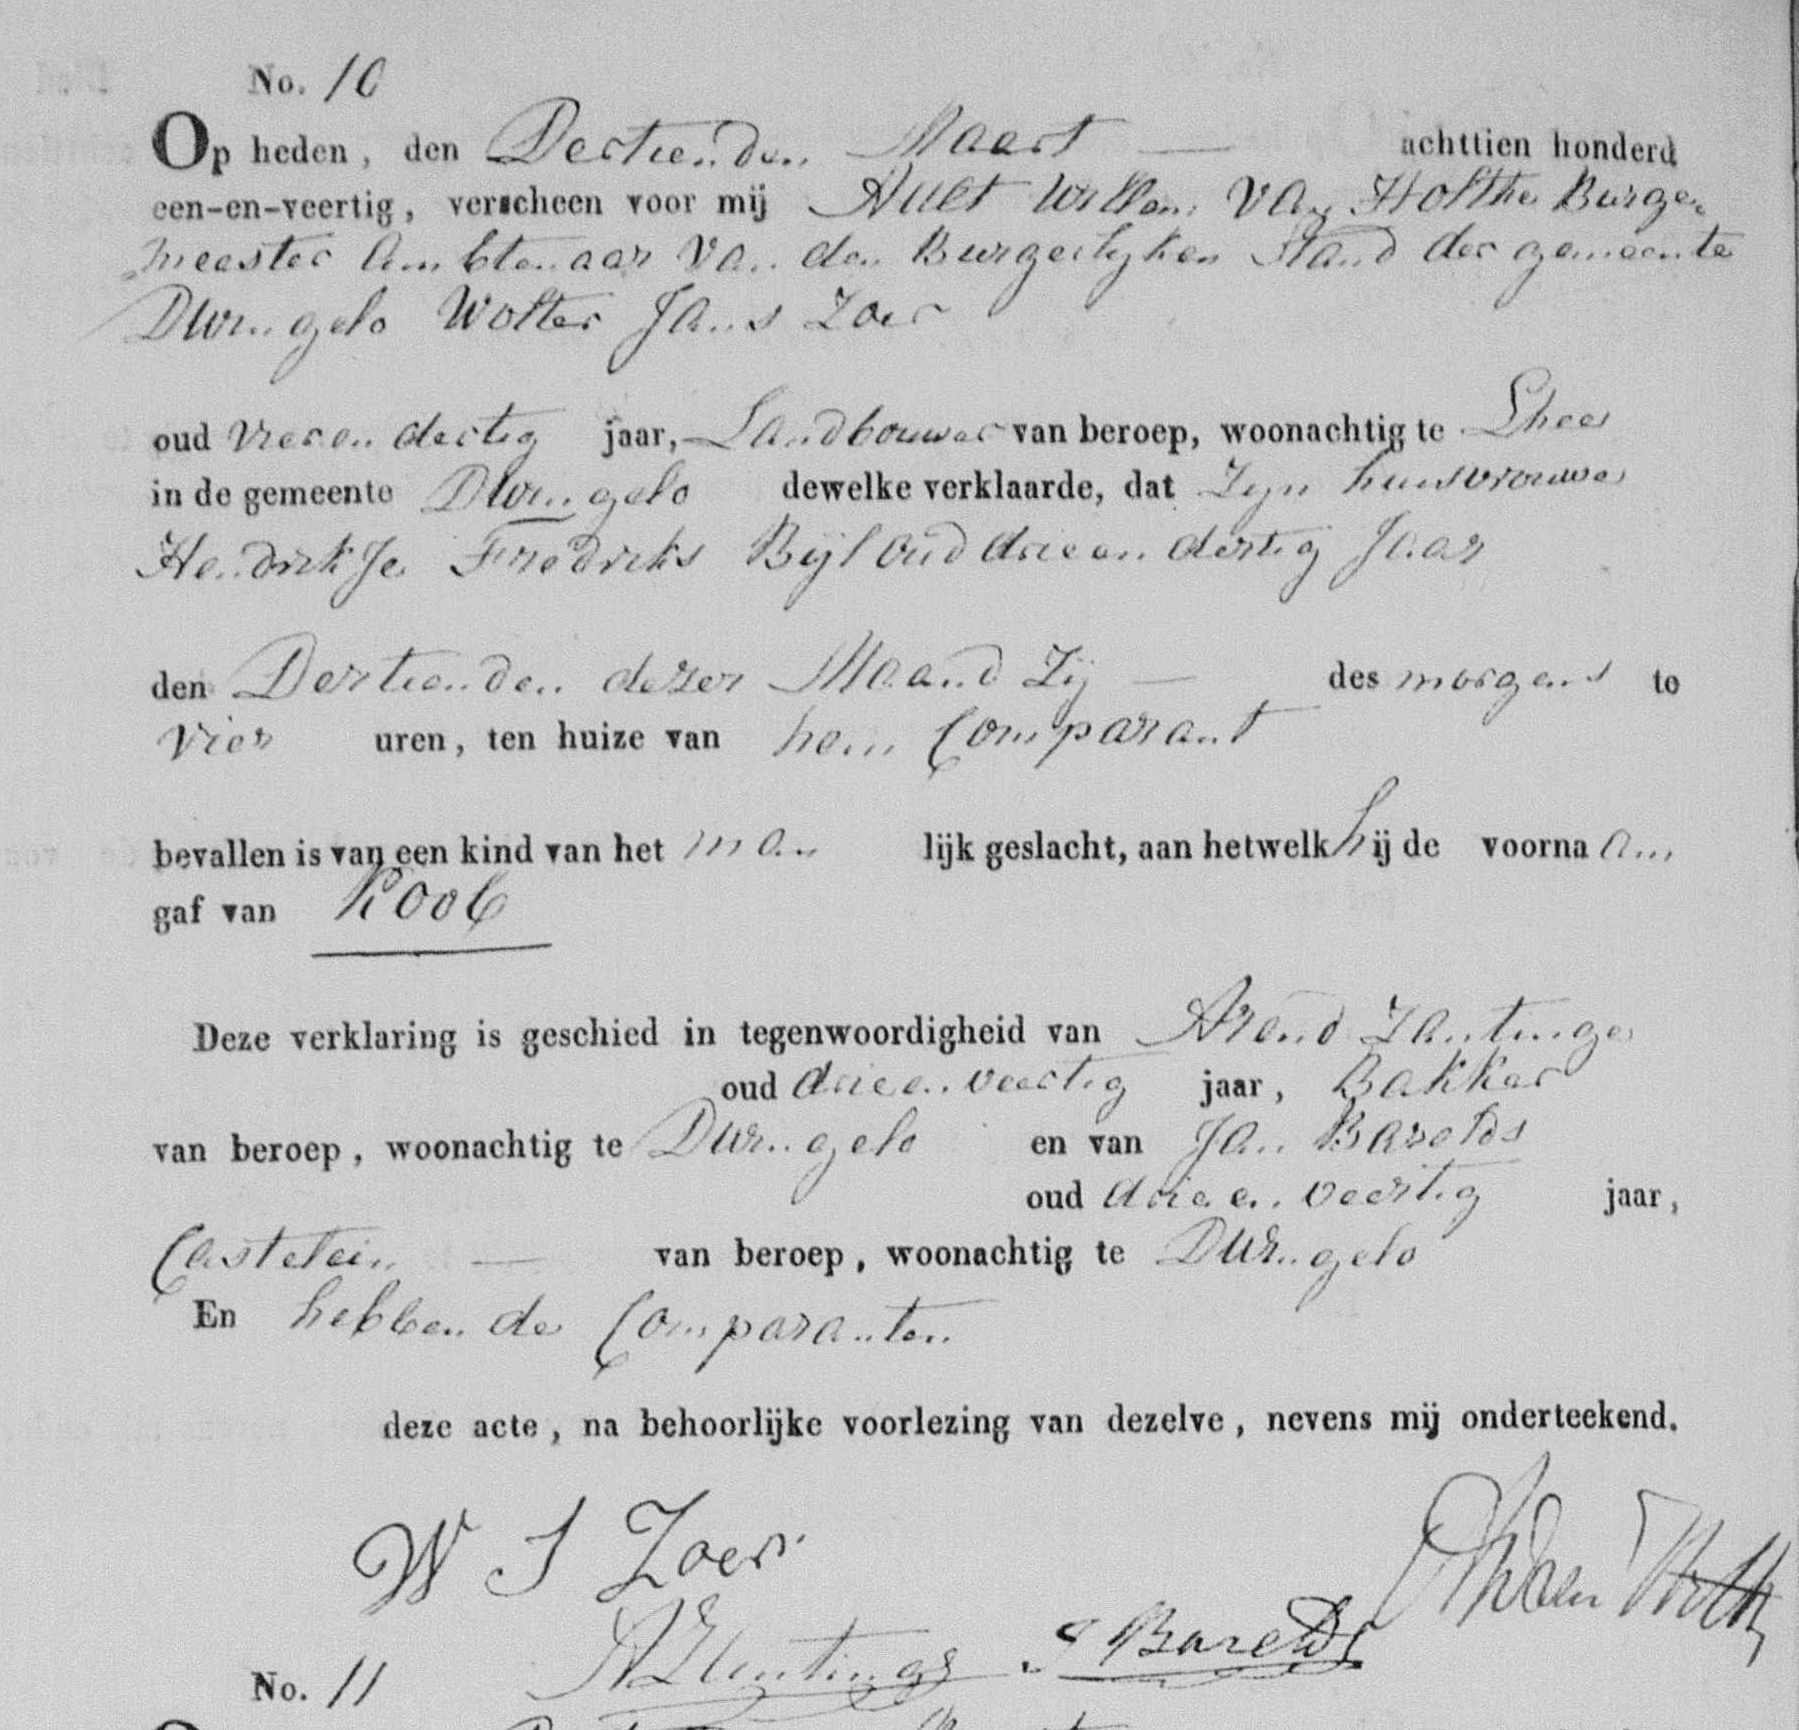 No. 10
Op heden, den Dertienden Maart — achttien honderd
een-en-veertig, verscheen voor mij Aalt Willem van Holthe Burge
meester Ambtenaar van den Burgerlyken Stand der gemeente
Dwingelo Wolter Jans Zoer
oud vier en dertig jaar, Landbouwer van beroep, woonachtig te Lhee
in de gemeente Dwingelo dewelke verklaarde, dat Zyn huisvrouwe
Hendrikje Fredriks Bijl oud drie en dertig Jaar
den Dertienden dezer Maand Zij — des morgens te
vier uren, ten huize van hem Comparant
bevallen is van een kind van het man lijk geslacht, aan hetwelk hij de voorna am
gaf van Roob
Deze verklaring is geschied in tegenwoordigheid van Arend Zantinge
oud drie en veertig jaar, Bakker
van beroep, woonachtig te Dwingelo en van Jan Barelds
oud drie en veertig jaar,
Castelein — van beroep, woonachtig te Dwingelo
En hebben de Comparanten
deze acte, na behoorlijke voorlezing van dezelve, nevens mij onderteekend.
W J Zoer
A Zantinge J Barelds
No. 11